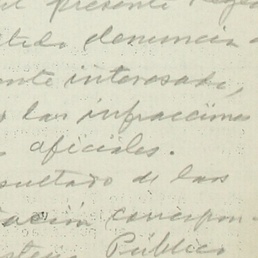 el presente Reg
denuncia
interesada,
las infracciones
oficiales.
sultado de las
ación correspon-
Público